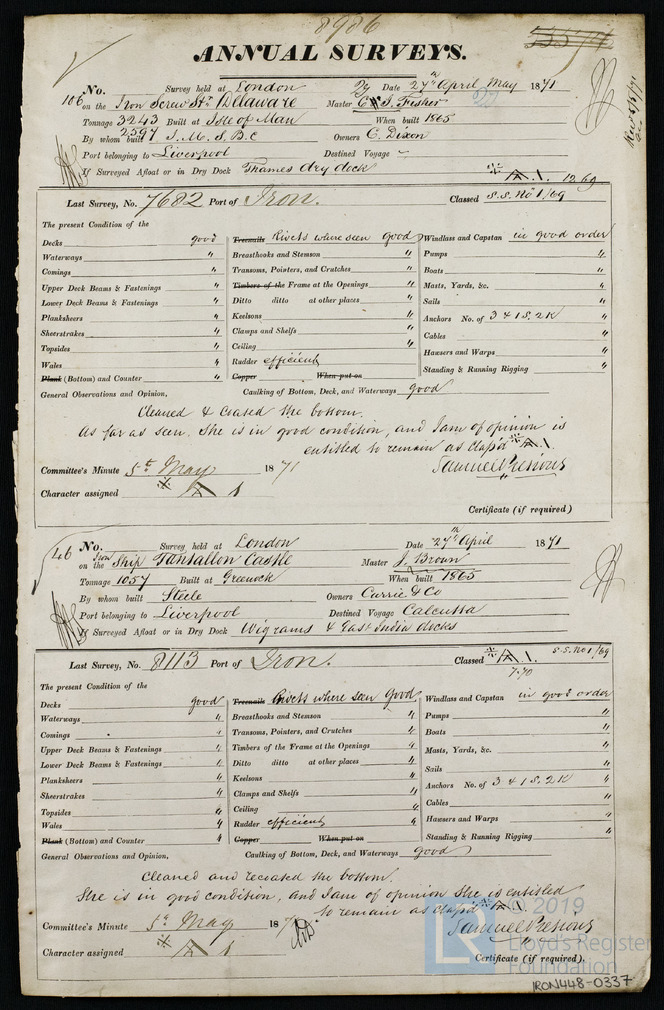 8986
ANNUAL SURVEYS.
No. 106 Survey held at London Date 27th April May 1871
on the Iron Screw Str Delaware Master J. Fisher
Tonnage 3243 Built at Isle of Man When built 1865
2597
By whom built I. M. S. B. C Owners C. Dixon
Port belonging to Liverpool Destined Voyage –
If Surveyed Afloat or in Dry Dock Thames dry dock
A.1. 12.69
Last Survey, No. 7682 Port of Iron. Classed S.S. No 1/69
The present Condition of the
Decks good Treenails Rivets where seen good Windlass and Capstan in good order
Waterways " Breasthooks and Stemson " Pumps "
Comings " Transoms, Pointers, and Crutches " Boats "
Upper Deck Beams & Fastenings " Timbers of the Frame at the Openings " Masts, Yards, &c. "
Lower Deck Beams & Fastenings " Ditto ditto at other places " Sails "
Planksheers " Keelsons " Anchors No. of 3 & 1 S. 2 K "
Sheerstrakes " Clamps and Shelfs " Cables "
Topsides " Ceiling " Hawsers and Warps "
Wales " Rudder efficient Standing & Running Rigging "
Plank (Bottom) and Counter " Copper When put on
General Observations and Opinion, Caulking of Bottom, Deck, and Waterways good
Cleaned & Coated the bottom.
As far as seen. She is in good condition, and I am of opinion is
entitled to remain as Clas'd A.1.
Committee's Minute 5th May 1871 Samuel Presious
Character assigned A 1
Certificate (if required)
No. 46 Survey held at London Date 27th April 1871
on the Iron Ship Tantallon Castle Master J. Brown
Tonnage 1057 Built at Greenock When built 1865
By whom built Steele Owners Currie & Co
Port belonging to Liverpool Destined Voyage Calcutta
If Surveyed Afloat or in Dry Dock Wigrams & East India docks
Last Survey, No. 8113 Port of Iron. Classed A.1. S.S. No 1/69
7.70
The present Condition of the
Decks good Treenails Rivets where seen Good Windlass and Capstan in good order
Waterways " Breasthooks and Stemson " Pumps "
Comings " Transoms, Pointers, and Crutches " Boats "
Upper Deck Beams & Fastenings " Timbers of the Frame at the Openings " Masts, Yards, &c. "
Lower Deck Beams & Fastenings " Ditto ditto at other places " Sails "
Planksheers " Keelsons " Anchors No. of 3 & 1 S. 2 K "
Sheerstrakes " Clamps and Shelfs " Cables "
Topsides " Ceiling " Hawsers and Warps "
Wales " Rudder efficient " Standing & Running Rigging "
Plank (Bottom) and Counter " Copper When put on
General Observations and Opinion, Caulking of Bottom, Deck, and Waterways good
Cleaned and recoated the bottom.
She is in good condition, and I am of opinion She is entitled
to remain as clas'd A.1.
Committee's Minute 5th May 187 Samuel Presious
Character assigned A 1
Certificate (if required).
LR © 2019
Lloyd's Register
Foundation
IRON448-0337